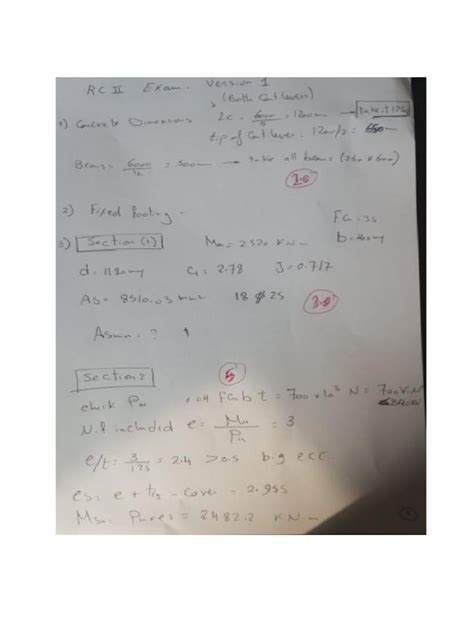 RC II Exam. Version 1
(Both Cantilevers)
1) Concrete Dimensions Lc = 6000/5 = 1200mm → take t 125
t.p of Cantilever: 1200/2 =
Beams = 6000/12 = 500mm → take all beams (250 x 600)
2.0
2) Fixed Footing -
Fcu = 35
b = 400mm
3) Section (1) Mu = 2520 KN.m
d = 1180mm C1 = 2.78 J = 0.717
As = 8510.03 mm2 18 ϕ 25
2.0
Asmin = ?
5
Section 2
check Pu = 0.04 Fcu b t = 700 x 10³ N = 700 KN
N.F included e = Mu/Pu = 3
e/t = 3/1.25 = 2.4 > 0.5 big ecc.
es = e + t/2 - cover = 2.955
Msu = Pu x es = 2482.2 KN.m